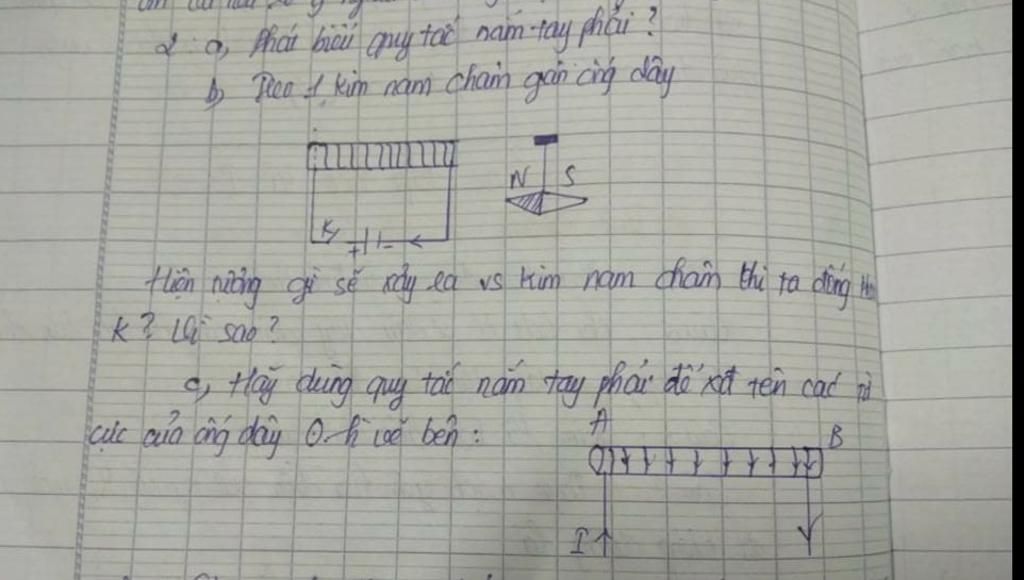 2 a, Phát biểu quy tắc nắm tay phải ?
b, Treo 1 kim nam châm gần ống dây
N S
K
+ -
Hiện tượng gì sẽ xảy ra vs kim nam châm khi ta đóng
K ? Vì sao ?
c, Hãy dùng quy tắc nắm tay phải để xđ tên các từ
cực của ống dây ở hình vẽ bên :
A
B
I